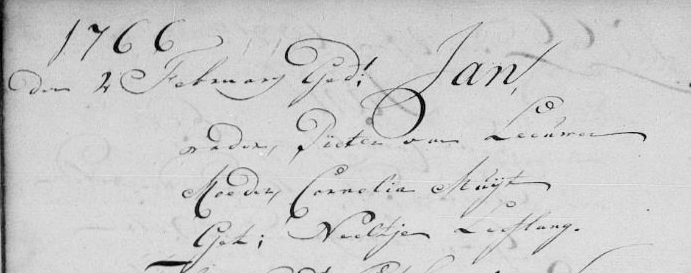 1766
den 2 February Ged: Jan,
vader, Pieter van Leeuwen
Moeder, Cornelia Kuijt
Get: Neeltje Leeflang.